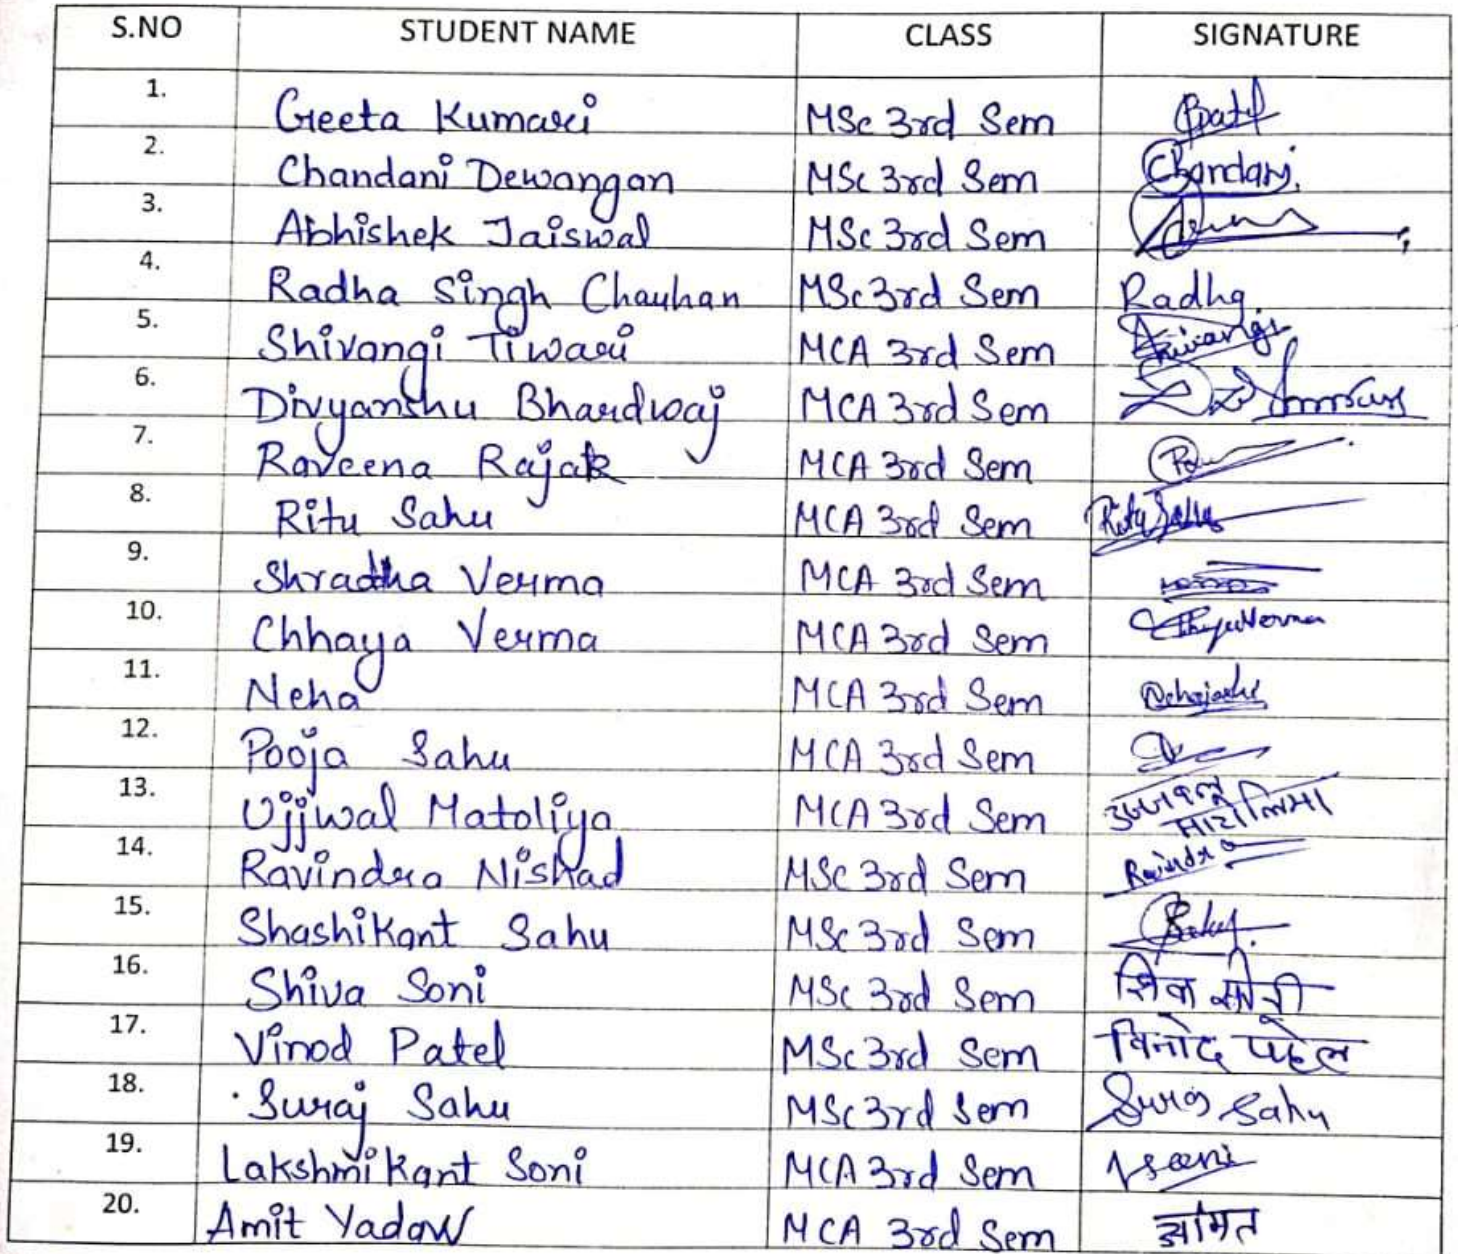 S.NO STUDENT NAME CLASS SIGNATURE
1. Geeta Kumari MSc 3rd Sem
2. Chandani Dewangan MSc 3rd Sem Chandani
3. Abhishek Jaiswal MSc 3rd Sem
4. Radha Singh Chauhan MSc 3rd Sem Radha
5. Shivangi Tiwari MCA 3rd Sem Shivangi
6. Divyanshu Bhardwaj MCA 3rd Sem
7. Raveena Rajak MCA 3rd Sem
8. Ritu Sahu MCA 3rd Sem Ritu Sahu
9. Shradha Verma MCA 3rd Sem
10. Chhaya Verma MCA 3rd Sem Chhaya Verma
11. Neha MCA 3rd Sem
12. Pooja Sahu MCA 3rd Sem
13. Ujjwal Matoliya MCA 3rd Sem
14. Ravindra Nishad MSc 3rd Sem Ravindra
15. Shashikant Sahu MSc 3rd Sem
16. Shiva Soni MSc 3rd Sem शिवा सोनी
17. Vinod Patel MSc 3rd Sem विनोद पटेल
18. Suraj Sahu MSc 3rd Sem Suraj Sahu
19. Lakshmikant Soni MCA 3rd Sem
20. Amit Yadaw MCA 3rd Sem अमित